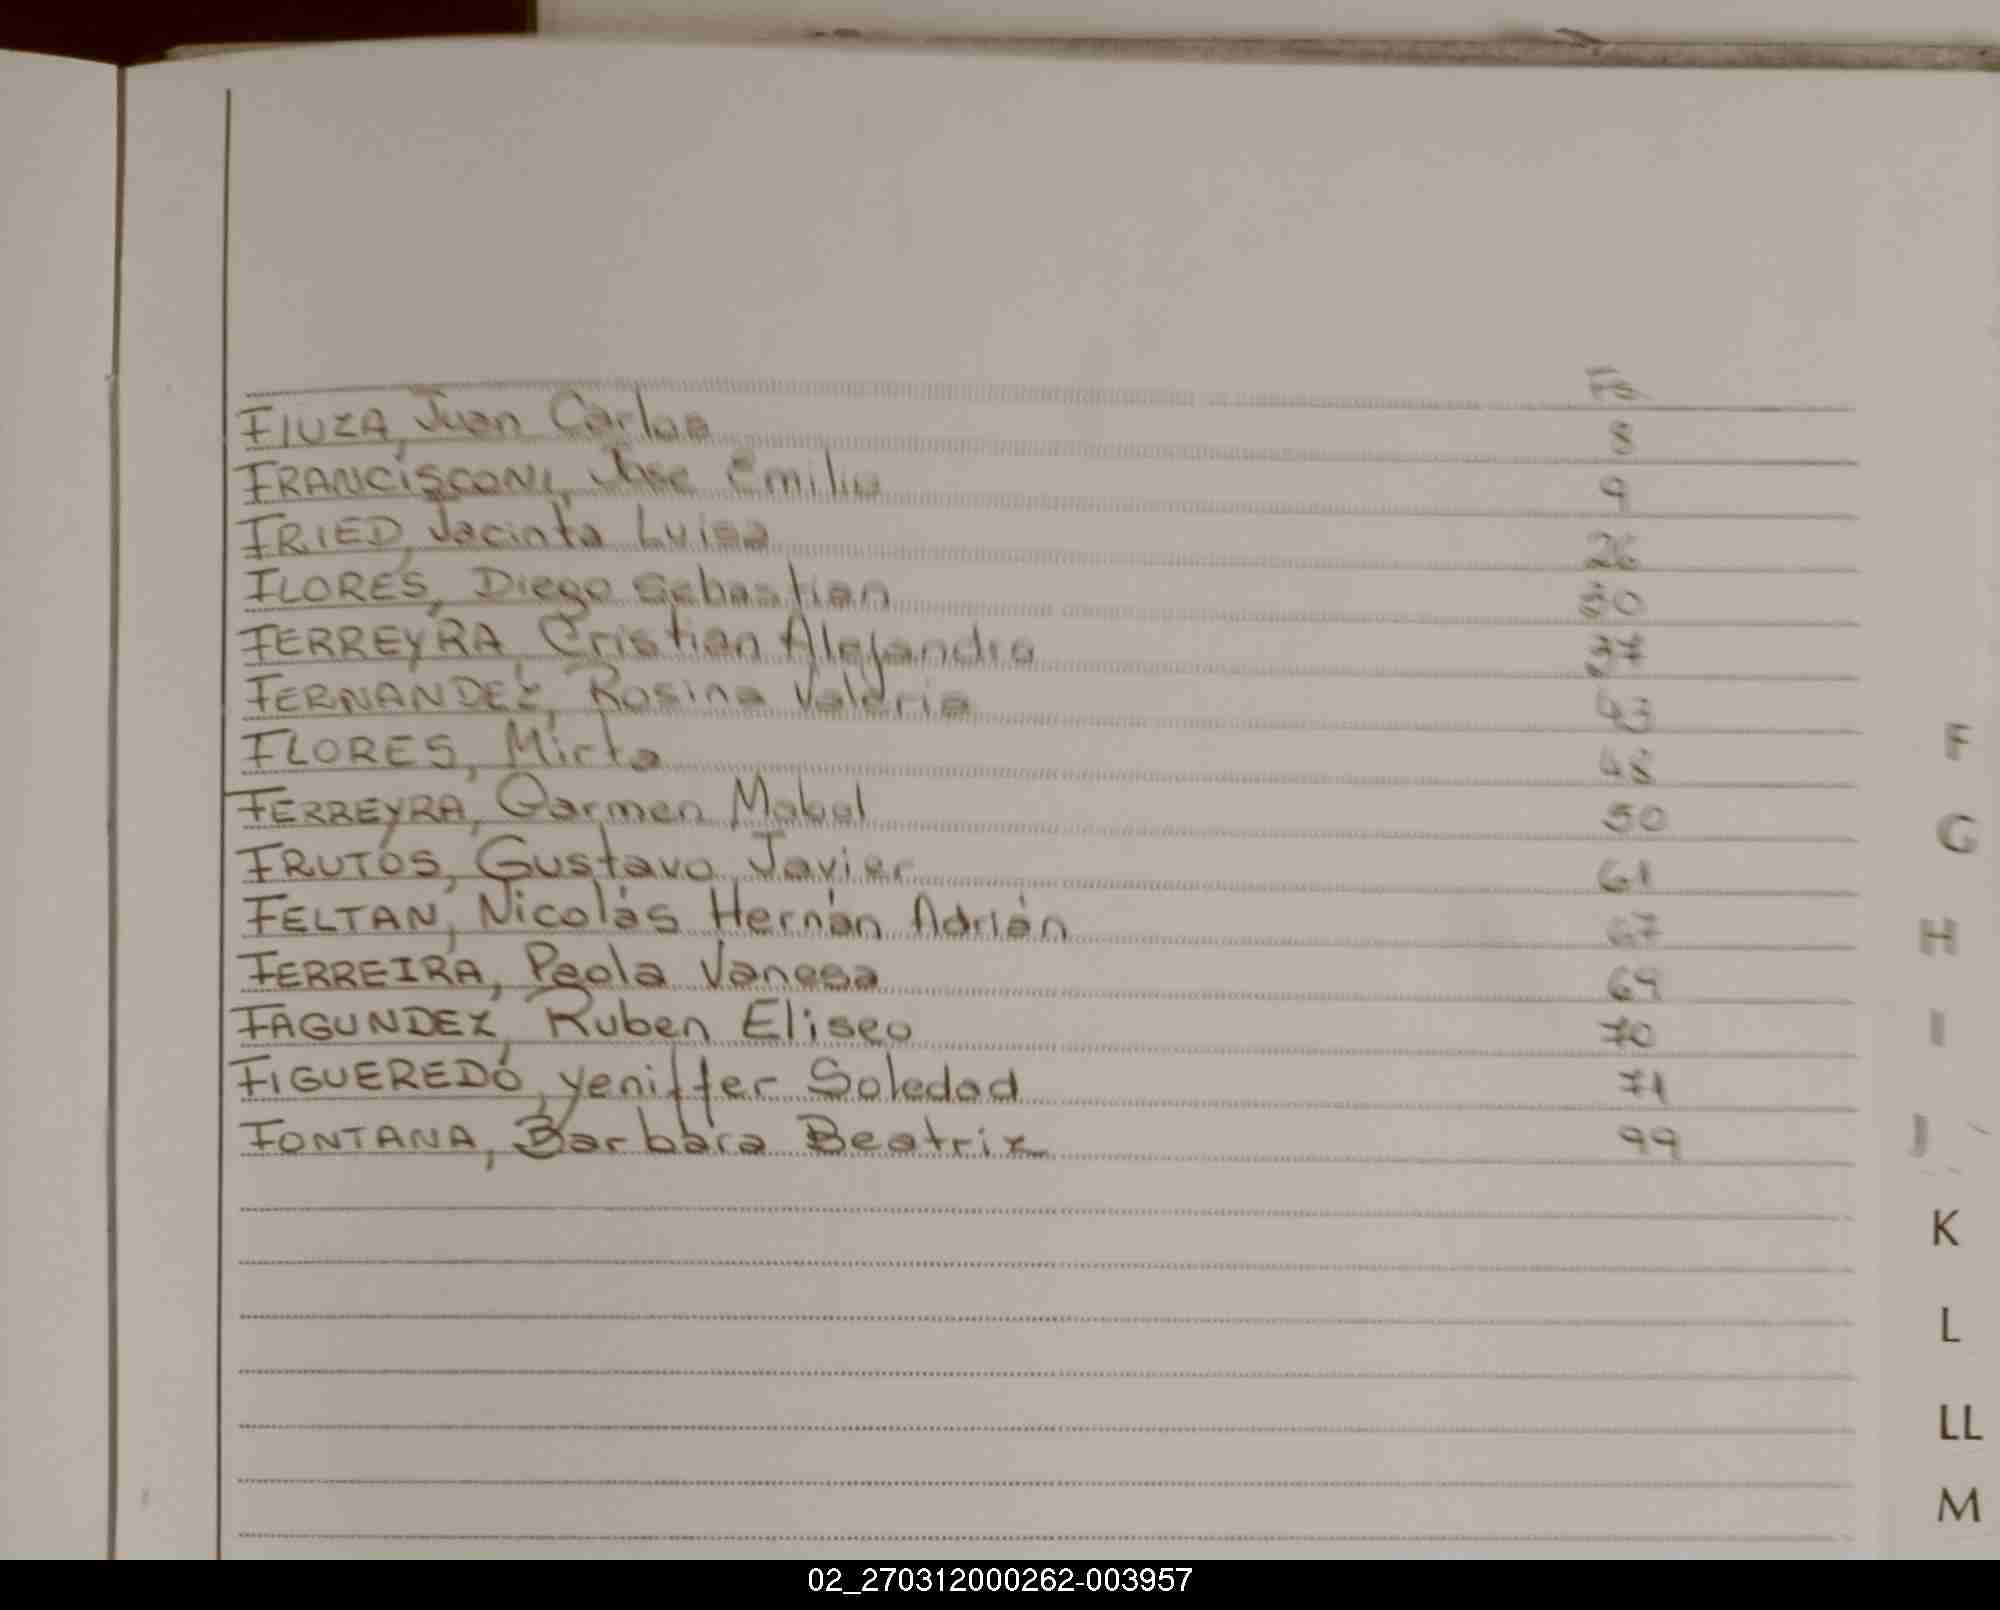 Fs
FIUZA, Juan Carlos 8
FRANCISCONI, Jose Emilio 9
FRIED, Jacinta Luisa 26
FLORES, Diego Sebastian 30
FERREYRA, Cristian Alejandro 37
FERNANDEZ, Rosina Valeria 43
FLORES, Mirta 48
FERREYRA, Carmen Mabel 50
FRUTOS, Gustavo Javier 61
FELTAN, Nicolás Hernán Adrián 67
FERREIRA, Paola Vanesa 69
FAGUNDEZ, Ruben Eliseo 70
FIGUEREDO, Yeniffer Soledad 71
FONTANA, Barbara Beatriz 99
F
G
H
I
J
K
L
LL
M
02_270312000262-003957